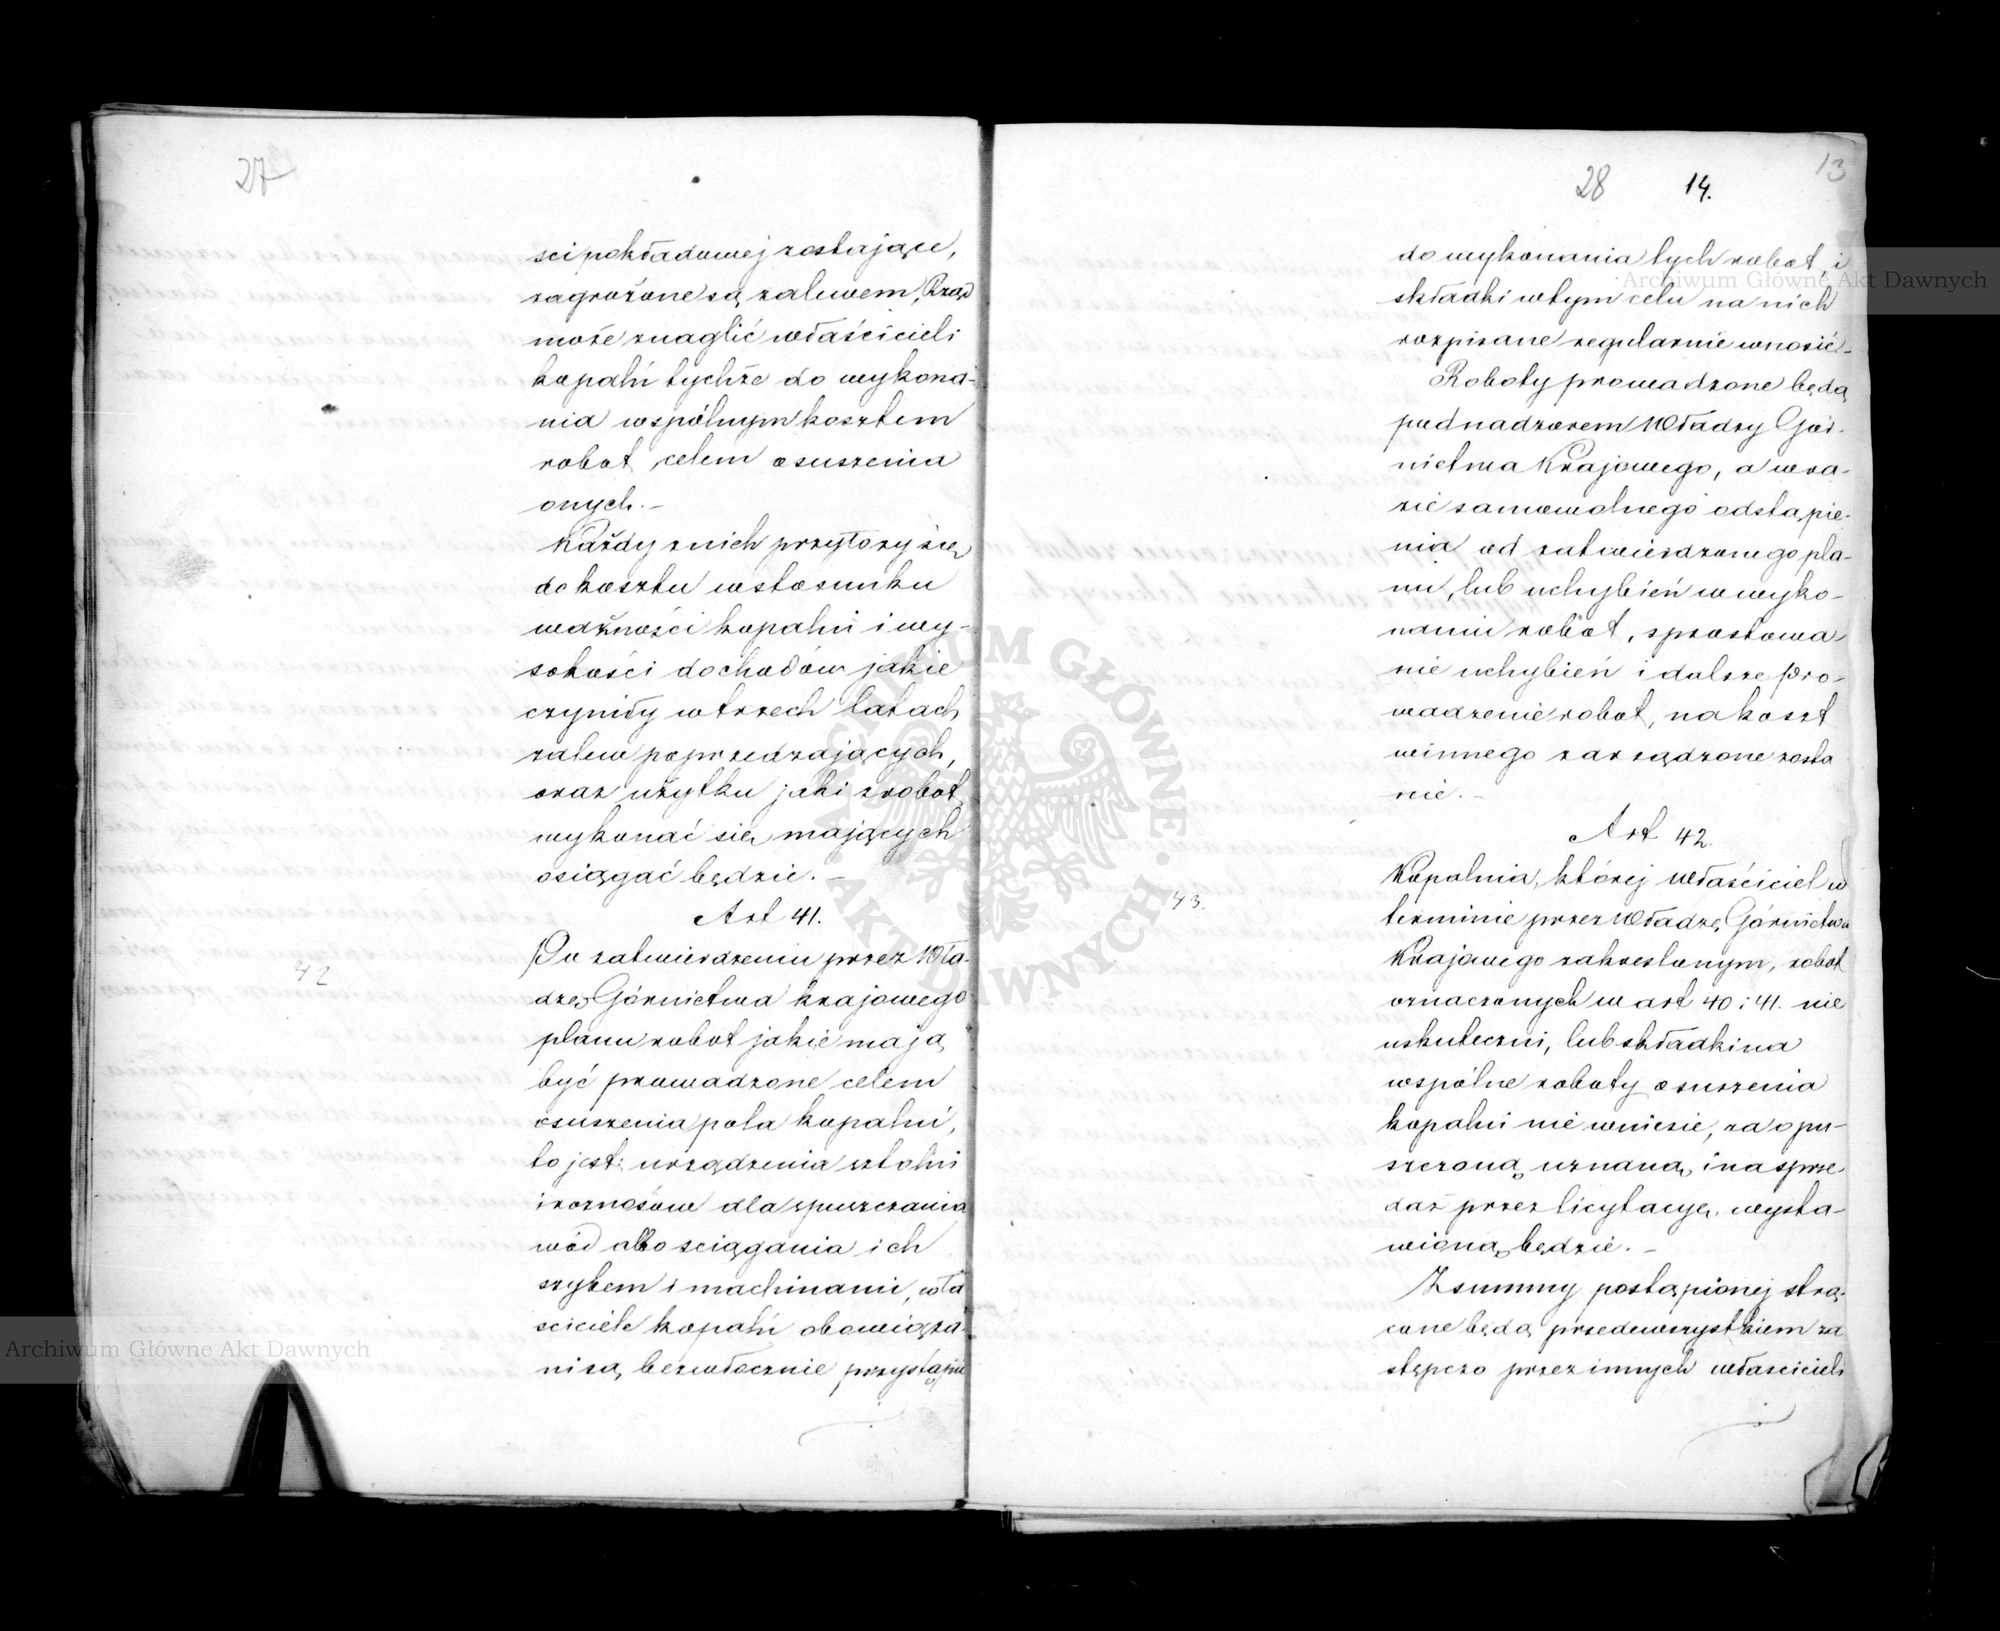 27
sci pokładowej zostające,
zagrożone są zalewem, Rząd
może znaglić właścicieli
kopalń tychże do wykona-
nia wspólnym kosztem
robot, celem osuszenia
onych.-
Każdy z nich przyłoży się
do kosztu w stosunku
ważności kopalni i wy-
sokości dochodów jakie
czyniły w trzech latach
zalew poprzedzających,
oraz użytku jaki z robot
wykonać się mających
osiągać będzie.-
Art 41.
42
Po zatwierdzeniu przez Wła-
dzę Górnictwa krajowego
planu robot jakie mają
być prowadzone celem
osuszenia pola kopalni,
to jest: urządzenia sztolni
i roznosów dla spuszczania
wód albo sciągania ich
szybem i machinami, wła
sciciele kopalń obowiąza-
ni są bezwłocznie przystąpić
28 14. 13
do wykonania tych robot, i
składki w tym celu na nich
rozpisane regularnie wnosić.-
Roboty prowadzone będą
pod nadzorem Władzy Gór-
nictwa Krajowego, a w ra-
zie samowolnego odstąpie-
nia od zatwierdzonego pla-
nu, lub uchybień w wyko-
naniu robot, sprostowa-
nie uchybień i dalsze pro-
wadzenie robot, na koszt
winnego zarządzone zosta
nie.-
Art 42.
43.
Kopalnia, której właściciel w
terminie przez Władzę Górnictwa
Krajowego zakreslonym, robot
oznaczonych w art 40 i 41. nie
uskuteczni, lub składki na
wspólne roboty osuszenia
kopalni nie wniesie, za opu-
szczoną uznaną, i na sprze-
daż przez licytacyę, wysta-
wioną będzie.-
Z summy postąpionej strą-
cone będą przedewszystkiem za
stępczo przez innych właścicieli
Archiwum Główne Akt Dawnych
Archiwum Główne Akt Dawnych
ARCHIWUM GŁÓWNE · AKT DAWNYCH ·